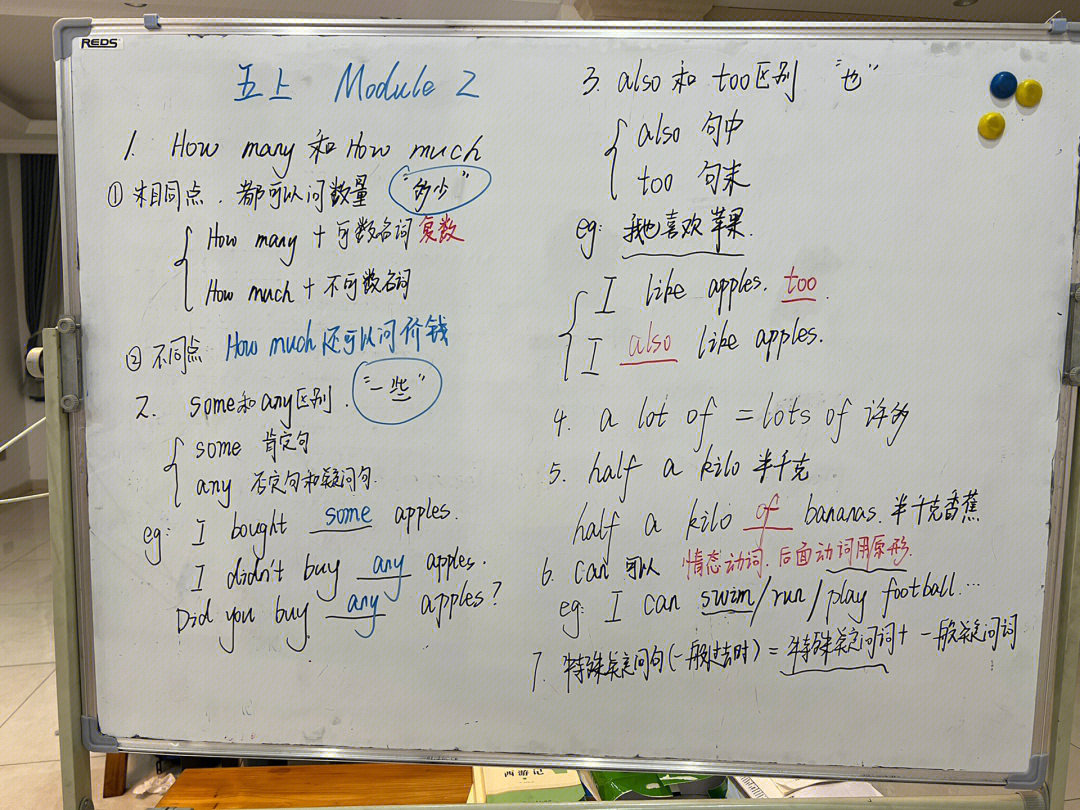 REDS
五上 Module 2
1. How many 和 How much
① 相同点. 都可以问数量 "多少"
How many + 可数名词复数
How much + 不可数名词
② 不同点 How much 还可以问价钱
2. some和any区别. "一些"
some 肯定句
any 否定句和疑问句.
eg: I bought some apples.
I didn't buy any apples.
Did you buy any apples?
3. also 和 too区别 "也"
also 句中
too 句末
eg: 我也喜欢苹果.
I like apples. too.
I also like apples.
4. a lot of = lots of 许多
5. half a kilo 半千克
half a kilo of bananas. 半千克香蕉
6. can 可以 情态动词. 后面动词用原形.
eg: I can swim/run/play football...
7. 特殊疑问句(一般过去时) = 特殊疑问词 + 一般疑问词
西游记